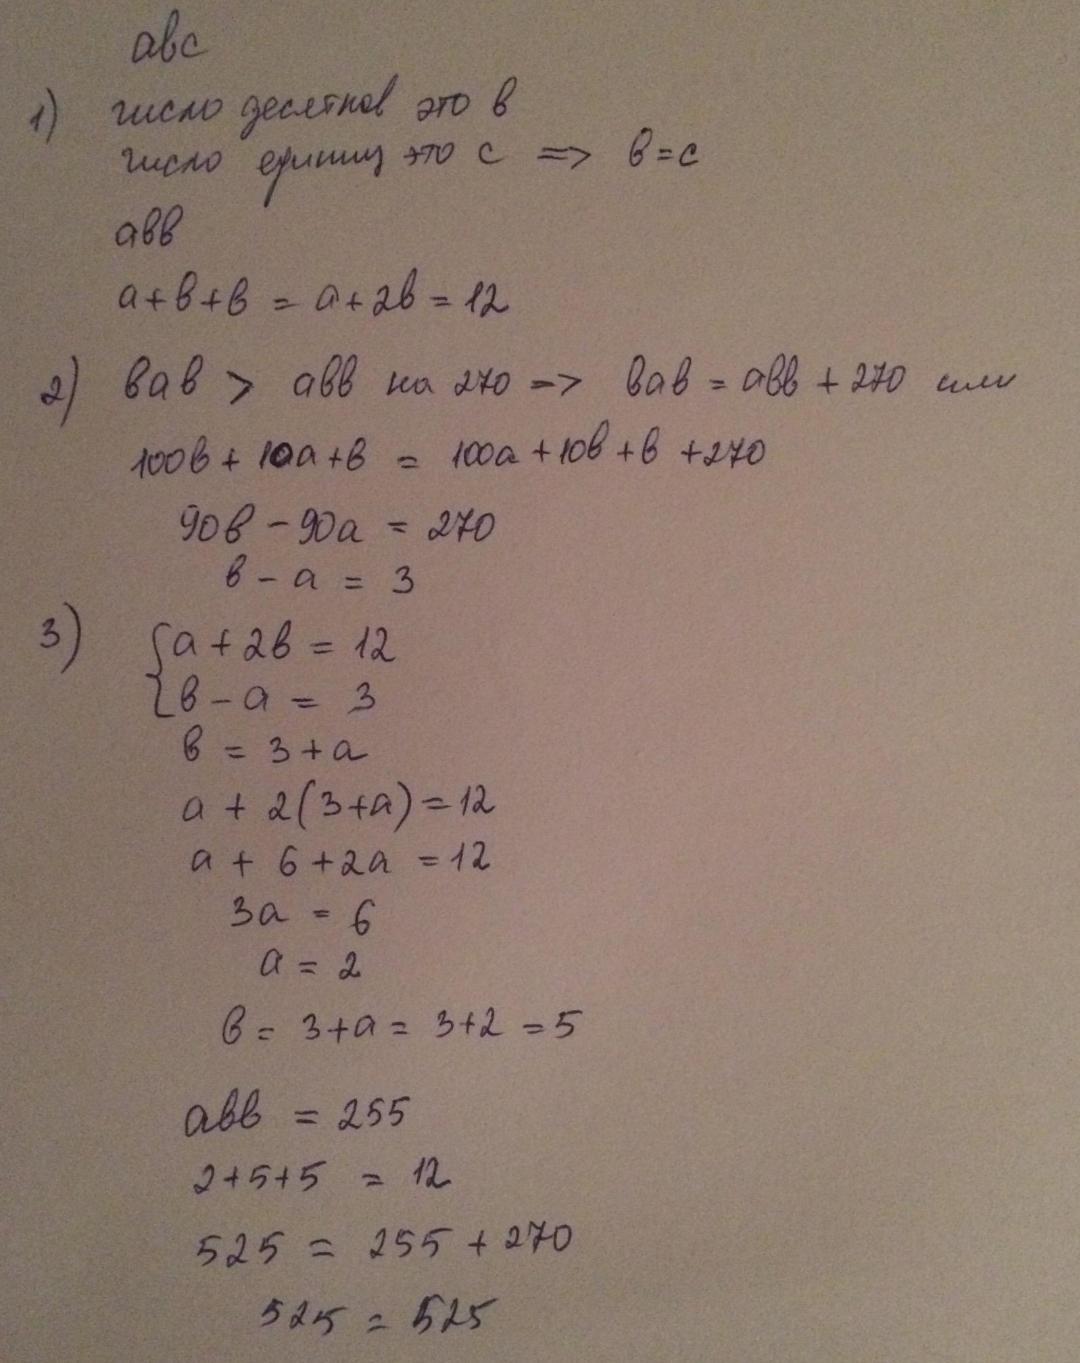 авс
1) число десятков это в
число единиц это с => в=с
авв
а+в+в = а+2в = 12
2) вав > авв на 270 => вав = авв + 270 или
100в + 10а + в = 100а + 10в + в + 270
90в - 90а = 270
в - а = 3
3) { а + 2в = 12
в - а = 3
в = 3 + а
а + 2(3+а) = 12
а + 6 + 2а = 12
3а = 6
а = 2
в = 3+а = 3+2 = 5
авв = 255
2+5+5 = 12
525 = 255 + 270
525 = 525